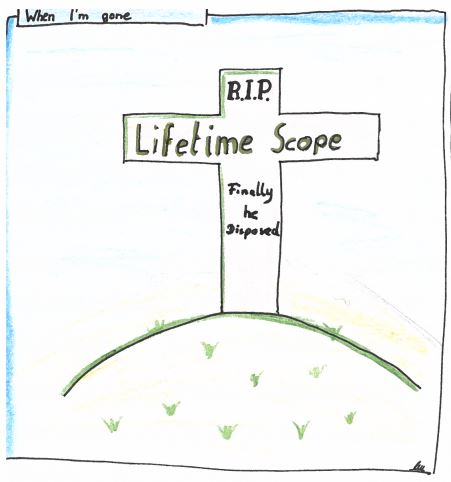 When I'm gone
R.I.P.
Lifetime Scope
Finally
he
Disposed